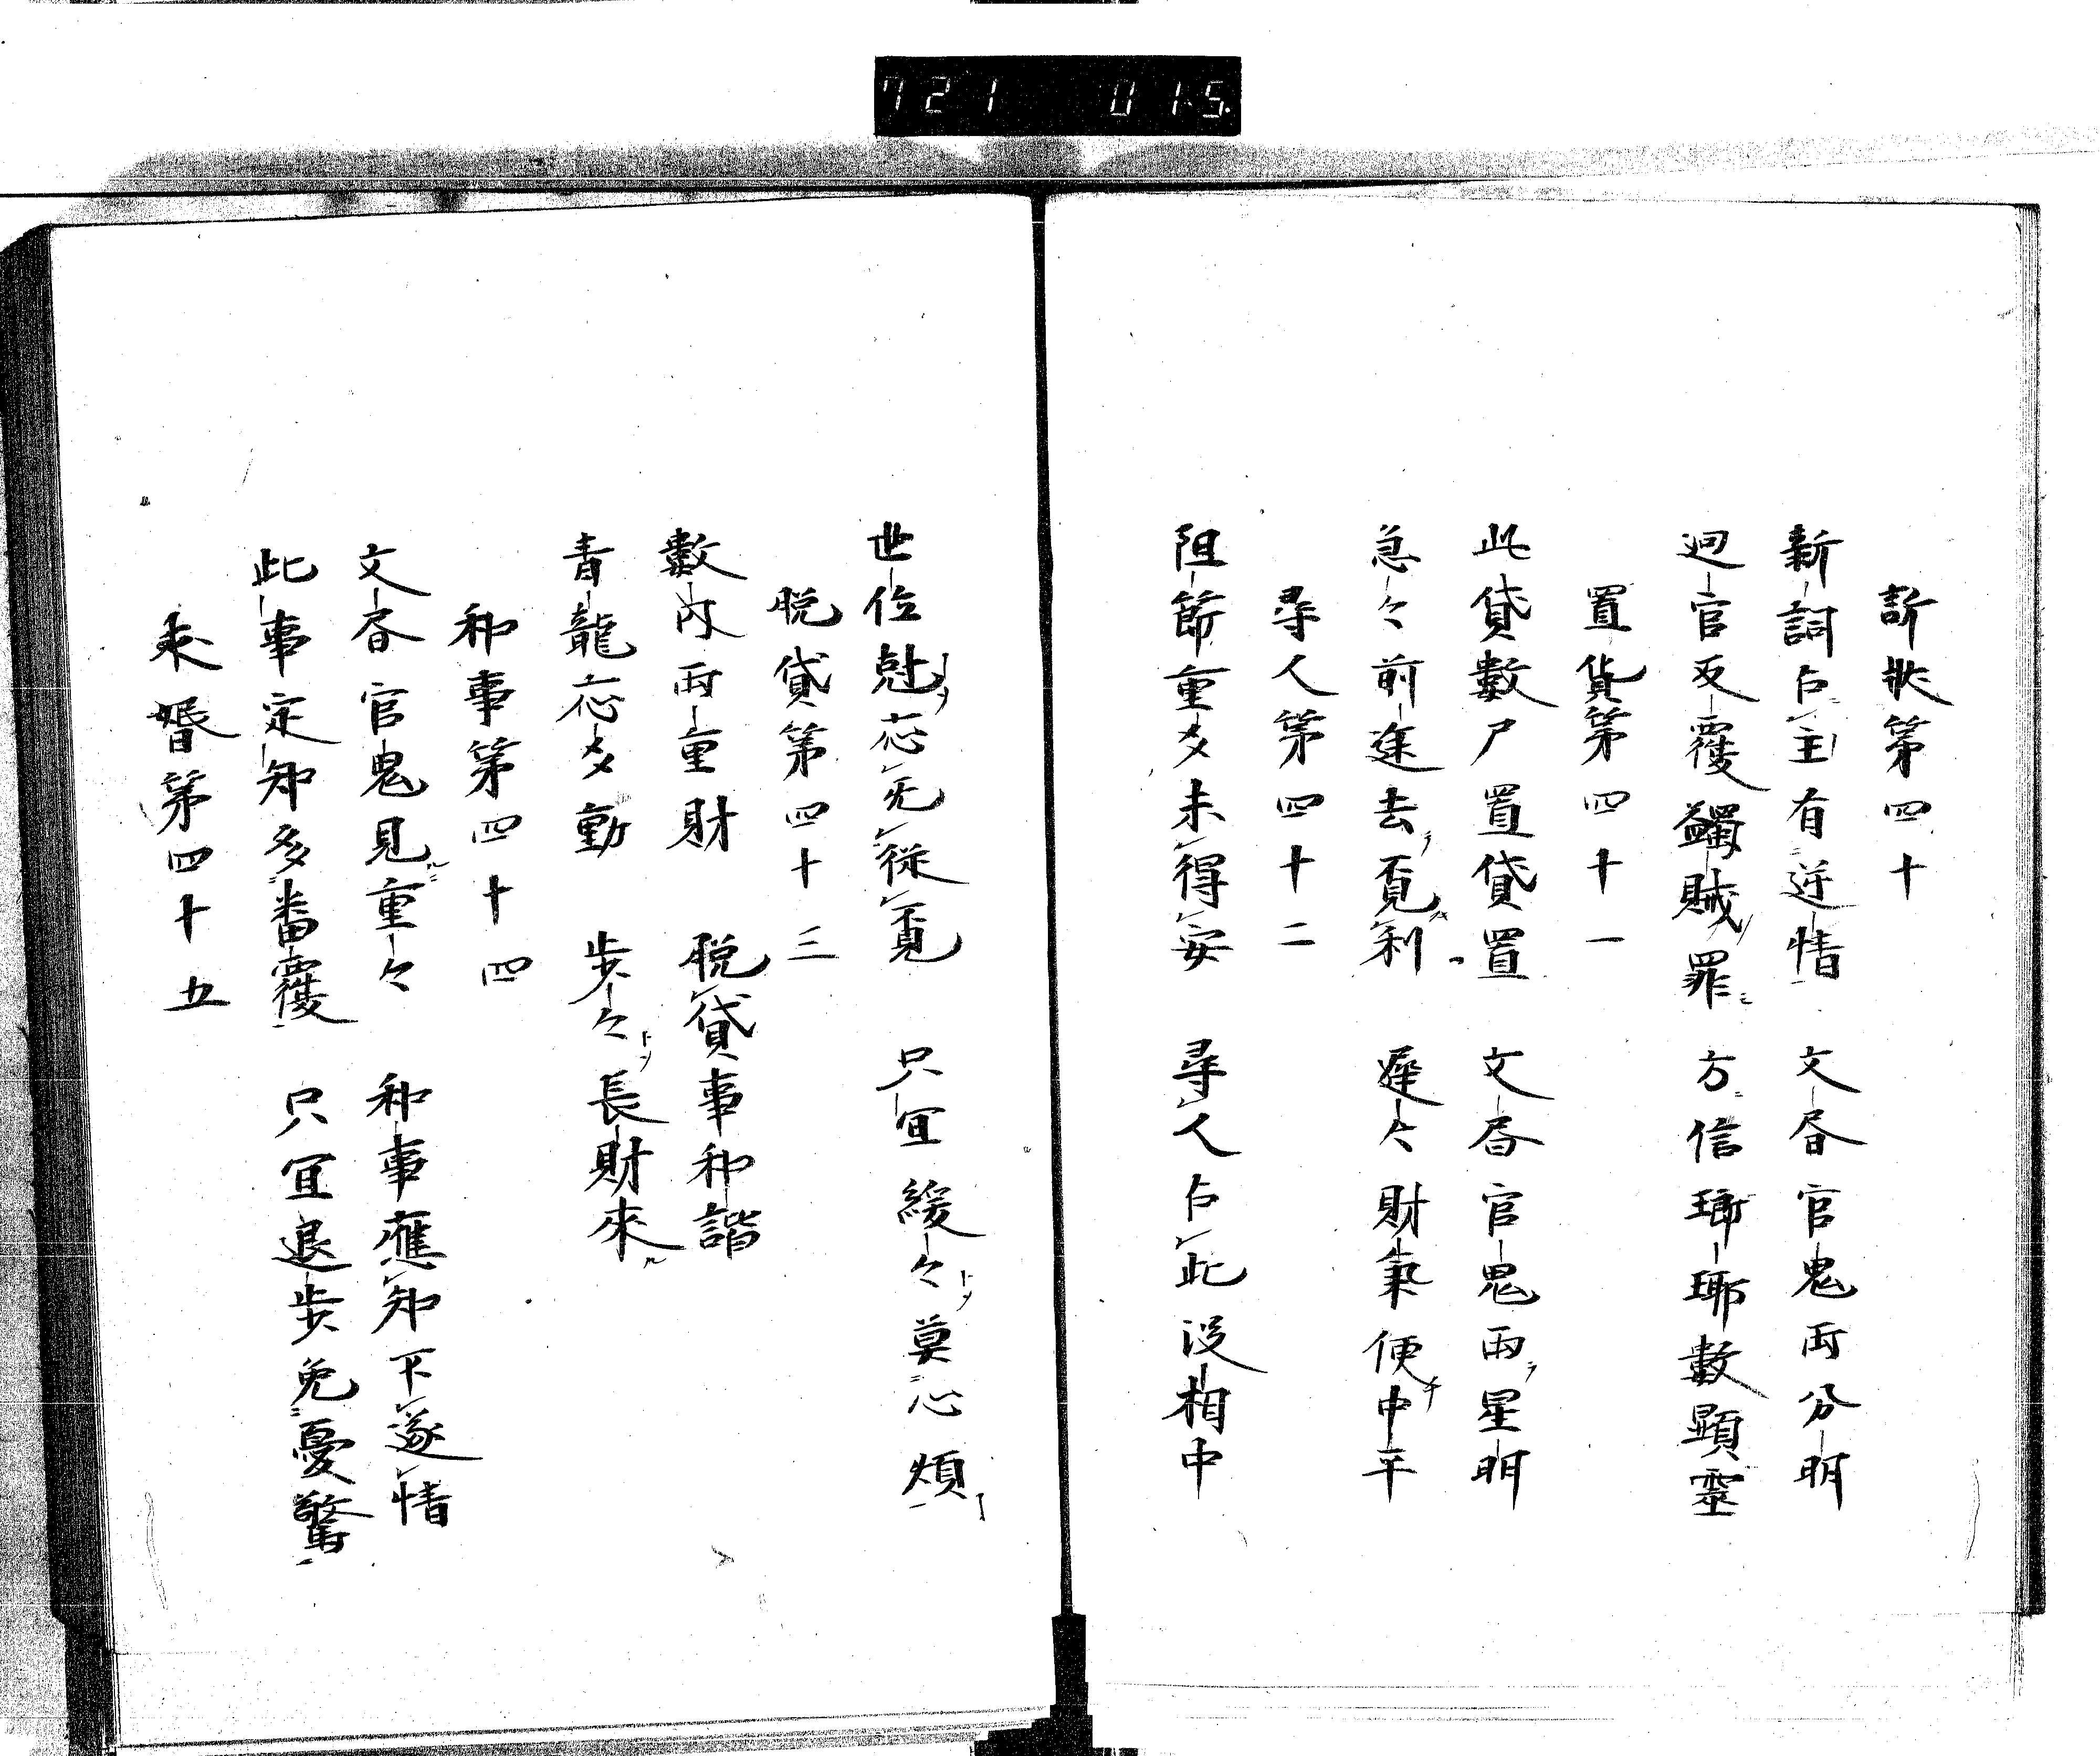 721 015
訴状第四十
新詞占主有逆情 文昏官鬼両分明
迴官反覆蠲賊罪 方信瑘瑘數顕霊
置貨第四十一
此貸數尸置貸置 文昏官鬼両星明
急々前途去覓利 遅々財氣便中平
尋人第四十二
阻節重々未得安 尋人占此没相中
世位尅应无従覓 只宜緩々莫心煩
脱貸第四十三
數内両重財 脱貸事和諧
青龍应爻動 歩々長財來
和事第四十四
文昏官鬼見重々 和事應知不遂情
此事定知多番覆 只宜退歩免憂驚
求婚第四十五